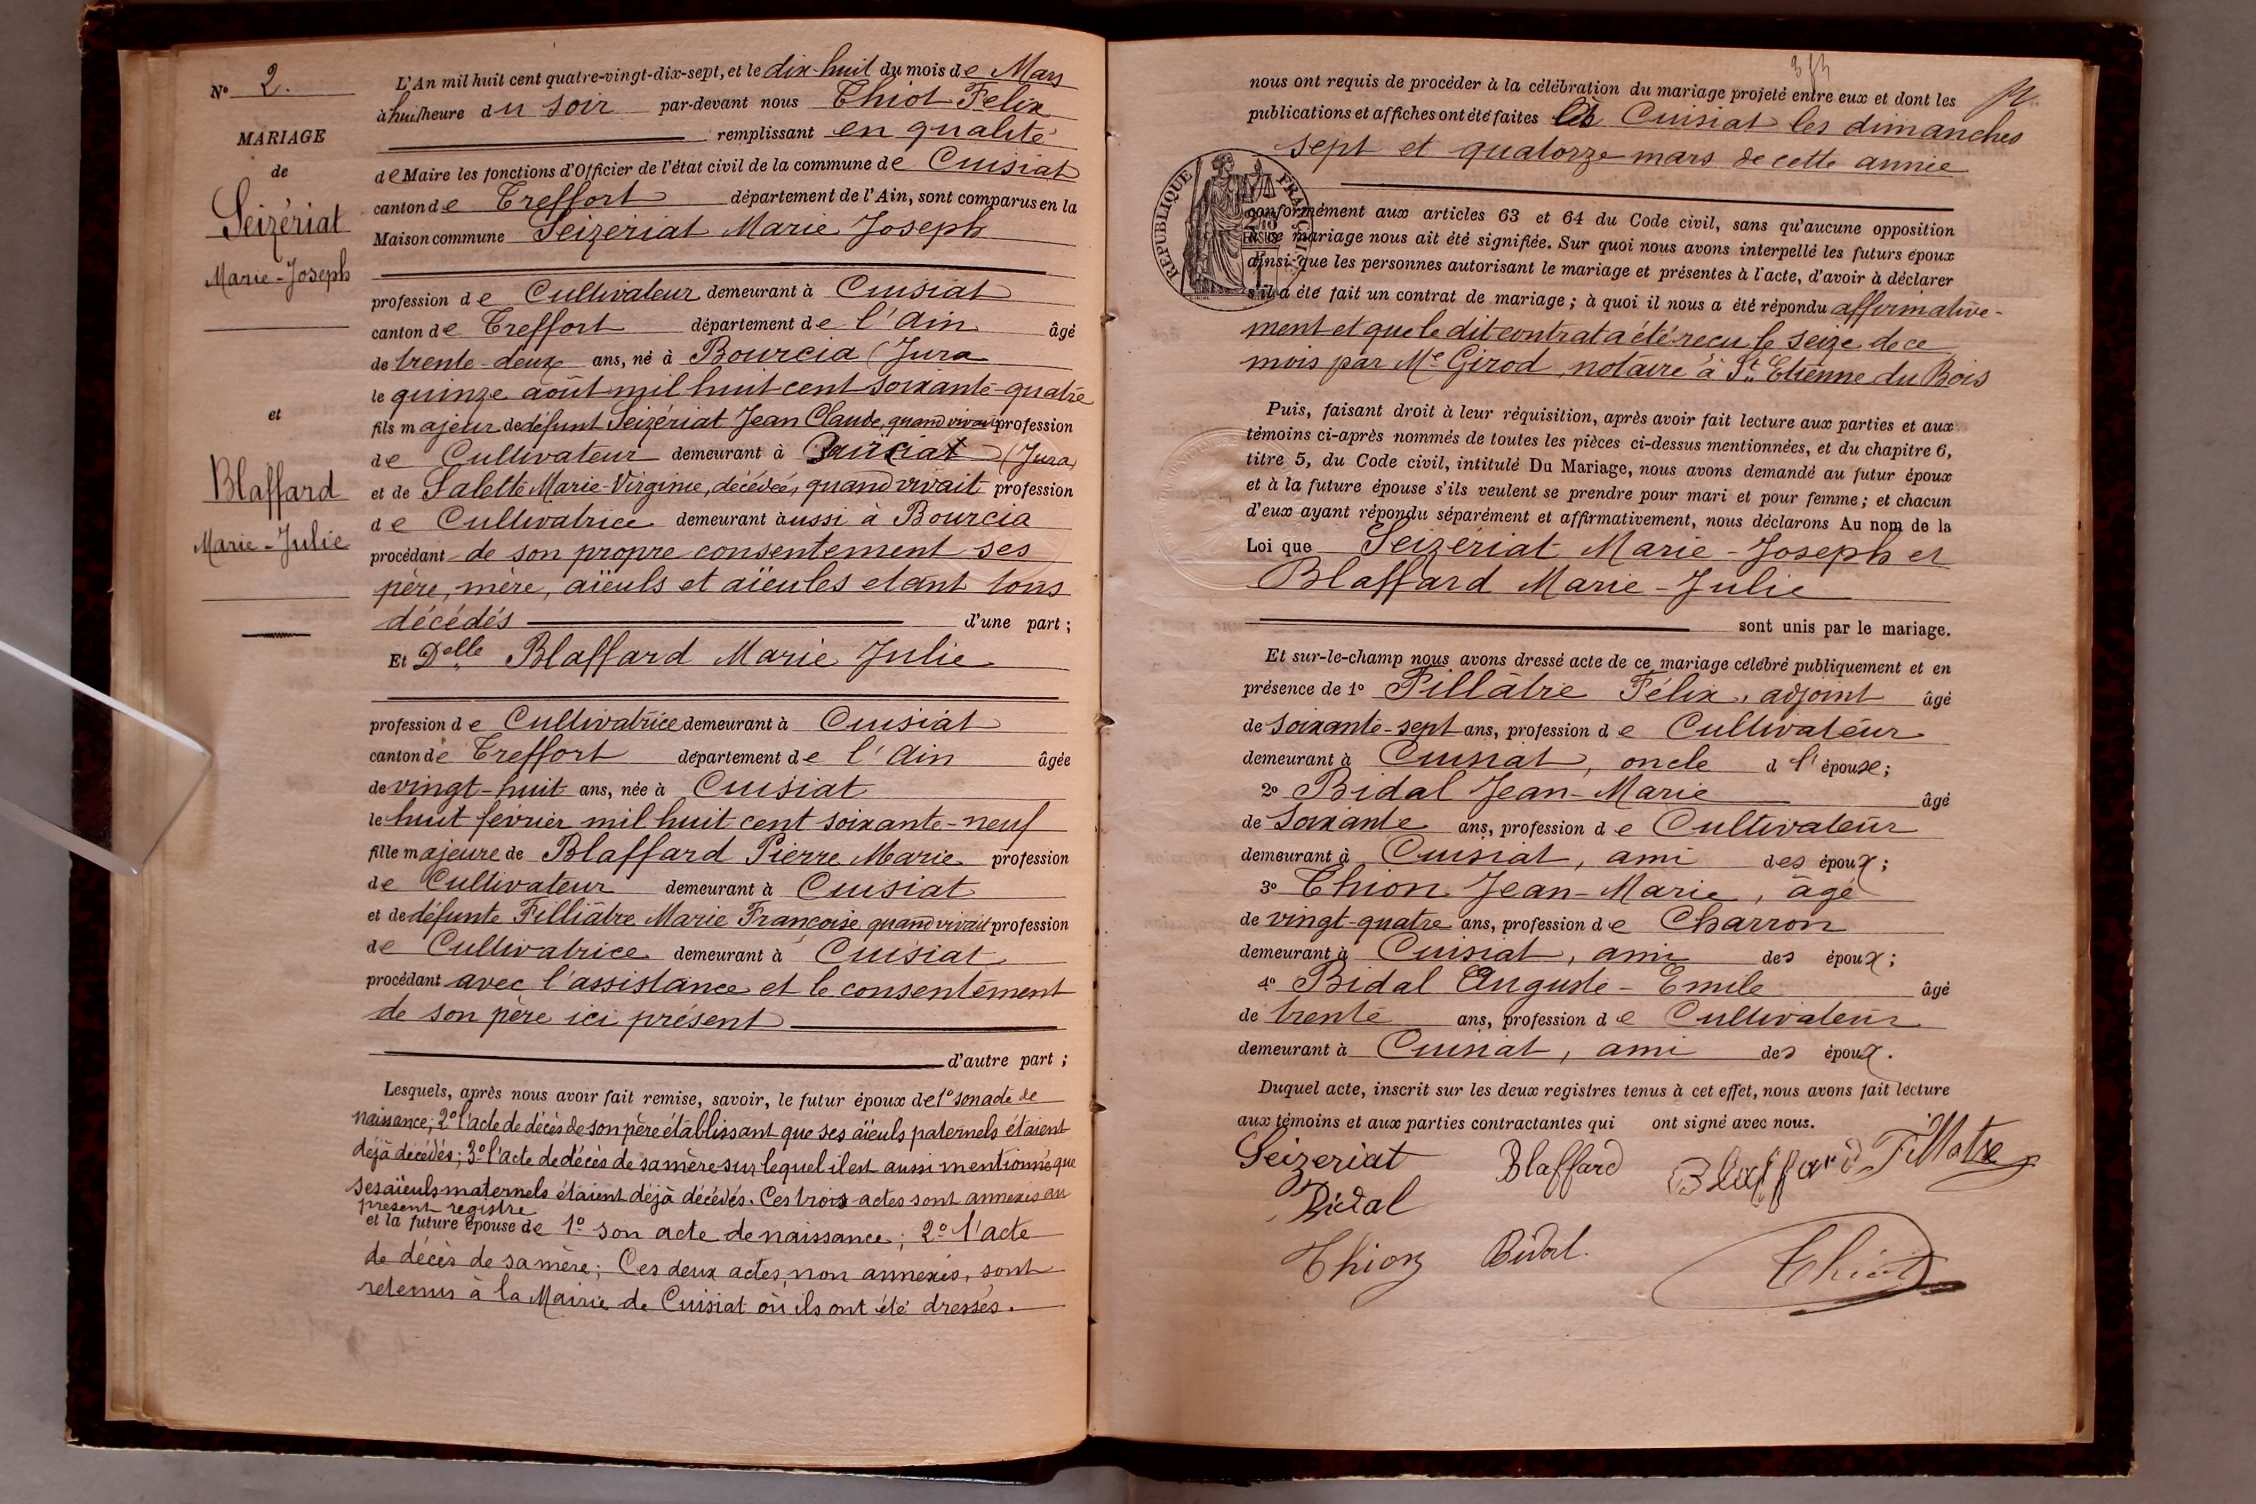 N° 2.
MARIAGE
de
Seizériat
Marie-Joseph
et
Blaffard
Marie-Julie
L'An mil huit cent quatre-vingt-dix-sept, et le dix-huit du mois de Mars
à huit heure du soir par-devant nous Thiot Felix
remplissant en qualité
de Maire les fonctions d'Officier de l'état civil de la commune de Cuisiat
canton de Treffort département de l'Ain, sont comparus en la
Maison commune Seizeriat Marie Joseph
profession de Cultivateur demeurant à Cuisiat
canton de Treffort département de l'Ain âgé
de trente-deux ans, né à Bourcia (Jura
le quinze août mil huit cent soixante-quatre
fils majeur de défunt Seizériat Jean Claude, quand vivait profession
de Cultivateur demeurant à (Jura)
et de Salette Marie-Virginie, décédée, quand vivait profession
de Cultivatrice demeurant aussi à Bourcia
procédant de son propre consentement ses
père, mère, aïeuls et aïeules etant tous
décédés d'une part ;
Et Delle Blaffard Marie Julie
profession de Cultivatrice demeurant à Cuisiat
canton de Treffort département de l'Ain âgée
de vingt-huit ans, née à Cuisiat
le huit février mil huit cent soixante-neuf
fille majeure de Blaffard Pierre Marie profession
de Cultivateur demeurant à Cuisiat
et de défunte Filliâtre Marie Françoise quand vivait profession
de Cultivatrice demeurant à Cuisiat
procédant avec l'assistance et le consentement
de son père ici présent
d'autre part ;
Lesquels, après nous avoir fait remise, savoir, le futur époux de 1° son acte de
naissance; 2° l'acte de décès de son père établissant que ses aïeuls paternels étaient
déjà décédés; 3° l'acte de décès de sa mère sur lequel il est aussi mentionné que
ses aïeuls maternels étaient déjà décédés. Ces trois actes sont annexés au
présent registre
et la future épouse de 1° son acte de naissance; 2° l'acte
de décès de sa mère; Ces deux actes, non annexés, sont
retenus à la Mairie de Cuisiat où ils ont été dressés.
nous ont requis de procéder à la célébration du mariage projeté entre eux et dont les
publications et affiches ont été faites à Cuisiat les dimanches
sept et quatorze mars de cette année
RÉPUBLIQUE FRANÇAISE
conformément aux articles 63 et 64 du Code civil, sans qu'aucune opposition
à ce mariage nous ait été signifiée. Sur quoi nous avons interpellé les futurs époux
ainsi que les personnes autorisant le mariage et présentes à l'acte, d'avoir à déclarer
s'il a été fait un contrat de mariage ; à quoi il nous a été répondu affirmative-
ment et que le dit contrat a été reçu le seize de ce
mois par Me Girod, notaire à St Etienne du Bois
Puis, faisant droit à leur réquisition, après avoir fait lecture aux parties et aux
témoins ci-après nommés de toutes les pièces ci-dessus mentionnées, et du chapitre 6,
titre 5, du Code civil, intitulé Du Mariage, nous avons demandé au futur époux
et à la future épouse s'ils veulent se prendre pour mari et pour femme ; et chacun
d'eux ayant répondu séparément et affirmativement, nous déclarons Au nom de la
Loi que Seizériat Marie-Joseph et
Blaffard Marie-Julie
sont unis par le mariage.
Et sur-le-champ nous avons dressé acte de ce mariage célébré publiquement et en
présence de 1° Fillâtre Félix, adjoint âgé
de soixante-sept ans, profession de Cultivateur
demeurant à Cuisiat, oncle d l'épouse ;
2° Bidal Jean-Marie âgé
de Soixante ans, profession de Cultivateur
demeurant à Cuisiat, ami des époux ;
3° Thion Jean-Marie, âgé
de vingt-quatre ans, profession de Charron
demeurant à Cuisiat, ami des époux ;
4° Bidal Auguste-Emile âgé
de trente ans, profession de Cultivateur
demeurant à Cuisiat, ami des époux.
Duquel acte, inscrit sur les deux registres tenus à cet effet, nous avons fait lecture
aux témoins et aux parties contractantes qui ont signé avec nous.
Seizeriat Blaffard Blaffard Fillatre
Bidal
Thion Bidal. Thiot